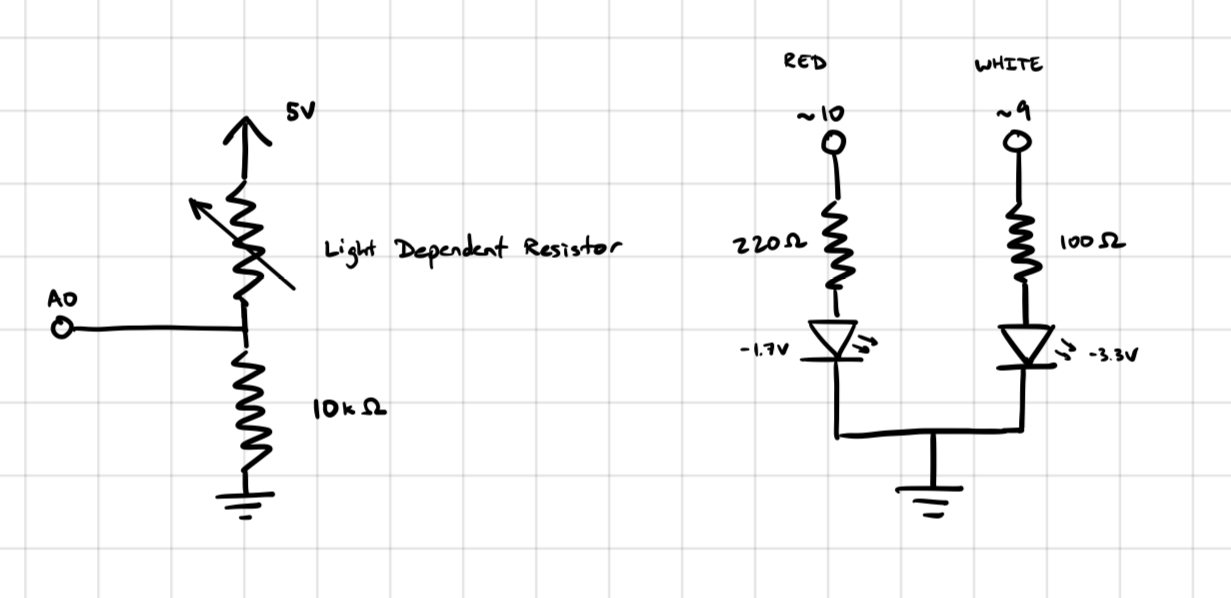 5V
Light Dependent Resistor
A0
10kΩ
RED
~10
220Ω
-1.7V
WHITE
~9
100Ω
-3.3V